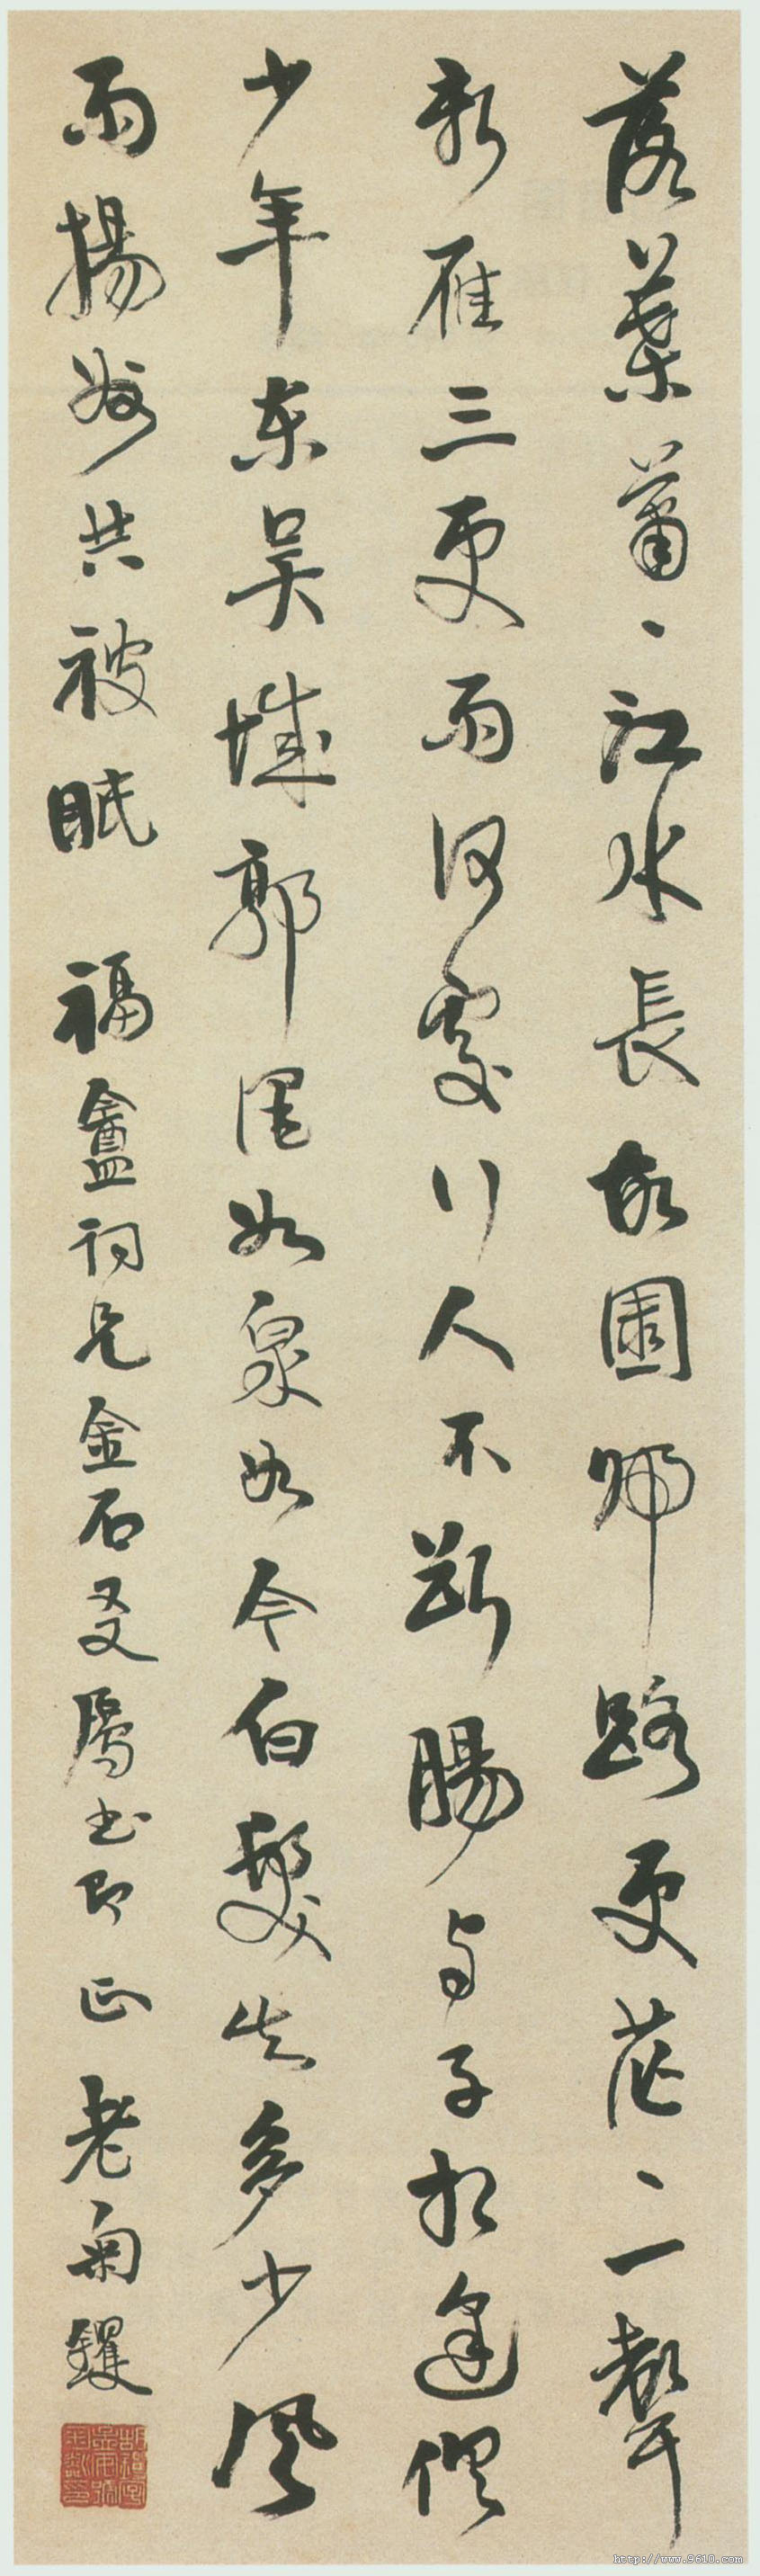 落葉蕭、江水長故園歸路更茫、一聲
新雁三更雨何處行人不斷腸與子相逢俱
少年東吳城郭酒如泉如今白髮知多少風
雨揚州共被眠 福盦詞兄金石交屬書即正 老匊钁
http://www.9610.com